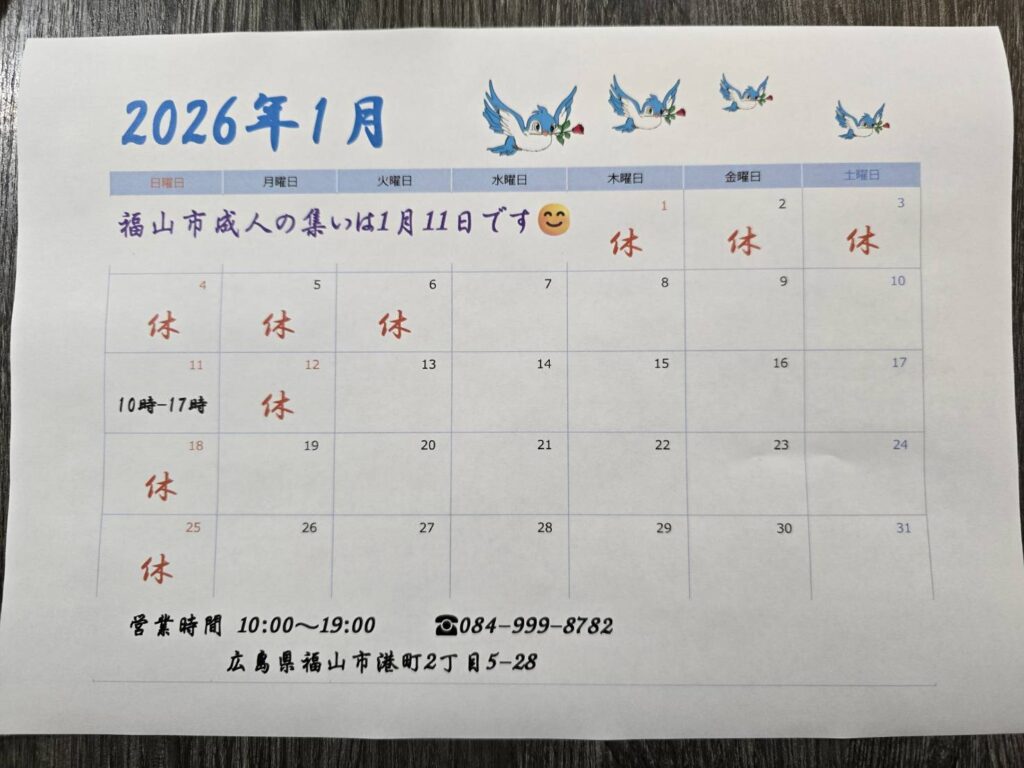 2026年1月
日曜日 月曜日 火曜日 水曜日 木曜日 金曜日 土曜日
福山市成人の集いは1月11日です😊
1 2 3
休 休 休
4 5 6 7 8 9 10
休 休 休
11 12 13 14 15 16 17
10時-17時 休
18 19 20 21 22 23 24
休
25 26 27 28 29 30 31
休
営業時間 10:00～19:00 ☎084-999-8782
広島県福山市港町2丁目5-28